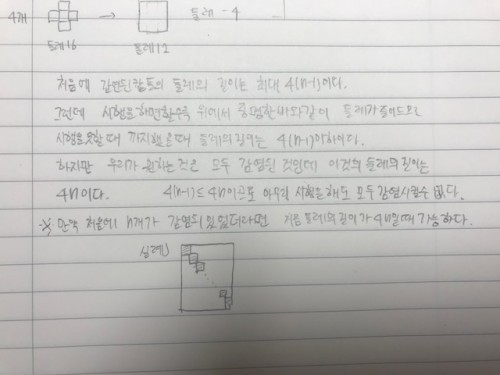 4개 → 둘레 -4
둘레16 둘레12
처음에 감염된칸들의 둘레의 길이는 최대 4(n-1)이다.
그런데 시행을하면할수록 위에서 증명한바와같이 둘레가 줄어드므로
시행을못할때 까지했을때 둘레의길이는 4(n-1)이하이다.
하지만 우리가 원하는것은 모두 감염된 것인데 이것의 둘레의길이는
4n이다. 4(n-1)≤4n이므로 아무리 시행을해도 모두 감염시킬수 없다.
※ 만약 처음에 n개가 감염되어있었더라면 처음 둘레의 길이가 4n일때 가능하다.
실례)